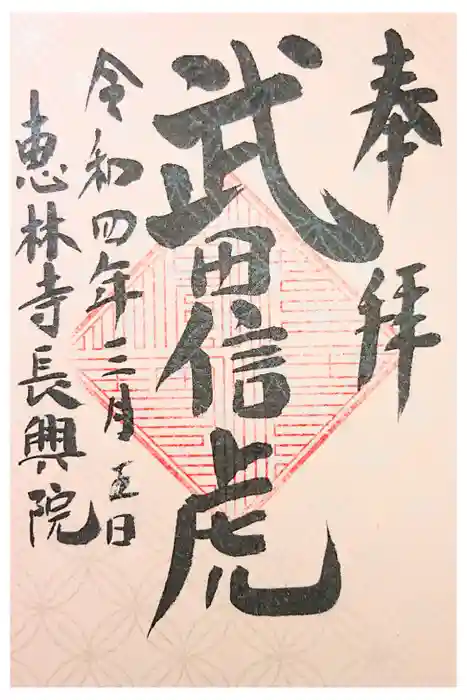 奉拝
武田信虎
令和四年三月五日
恵林寺長興院